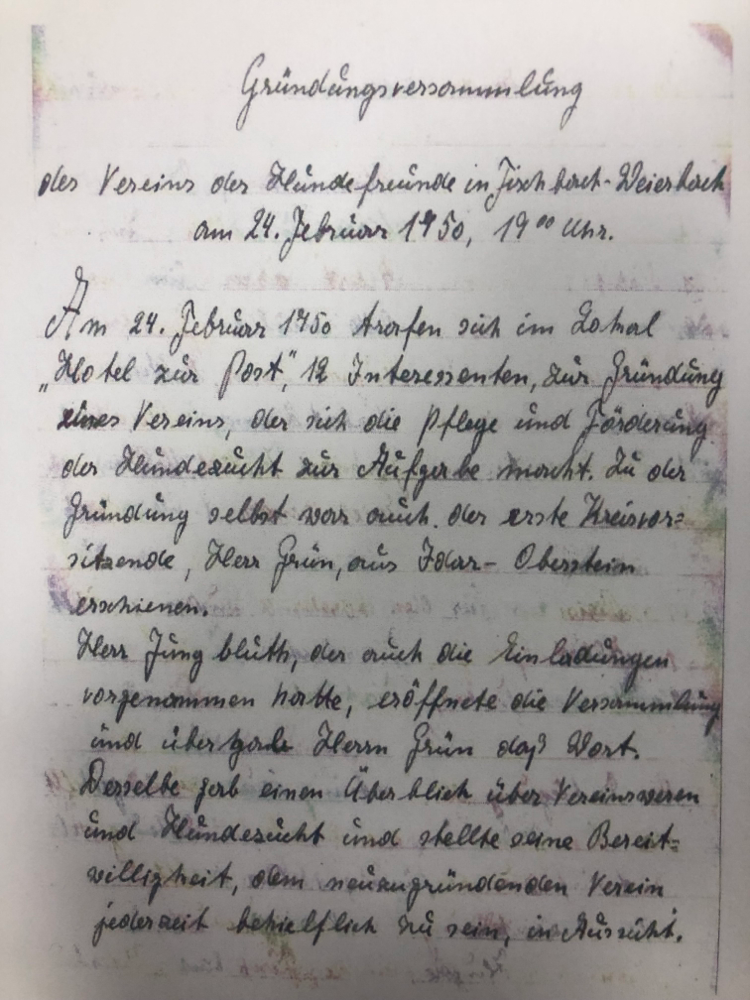 Gründungsversammlung
des Vereins der Hundefreunde in Fischbach-Weierbach
am 24. Februar 1950, 19⁰⁰ Uhr.
Am 24. Februar 1950 trafen sich im Lokal
„Hotel zur Post", 12 Interessenten, zur Gründung
eines Vereins, der sich die Pflege und Förderung
der Hundezucht zur Aufgabe macht. Zu der
Gründung selbst war auch der erste Kreisvor=
sitzende, Herr Grün, aus Idar-Oberstein
erschienen.
Herr Jung blüth, der auch die Einladungen
vorgenommen hatte, eröffnete die Versammlung
und übergab Herrn Grün daß Wort.
Derselbe gab einen Überblick über Vereinswesen
und Hundezucht und stellte seine Bereit=
willigkeit, dem neuzugründenden Verein
jederzeit behielflich zu sein, in Aussicht.